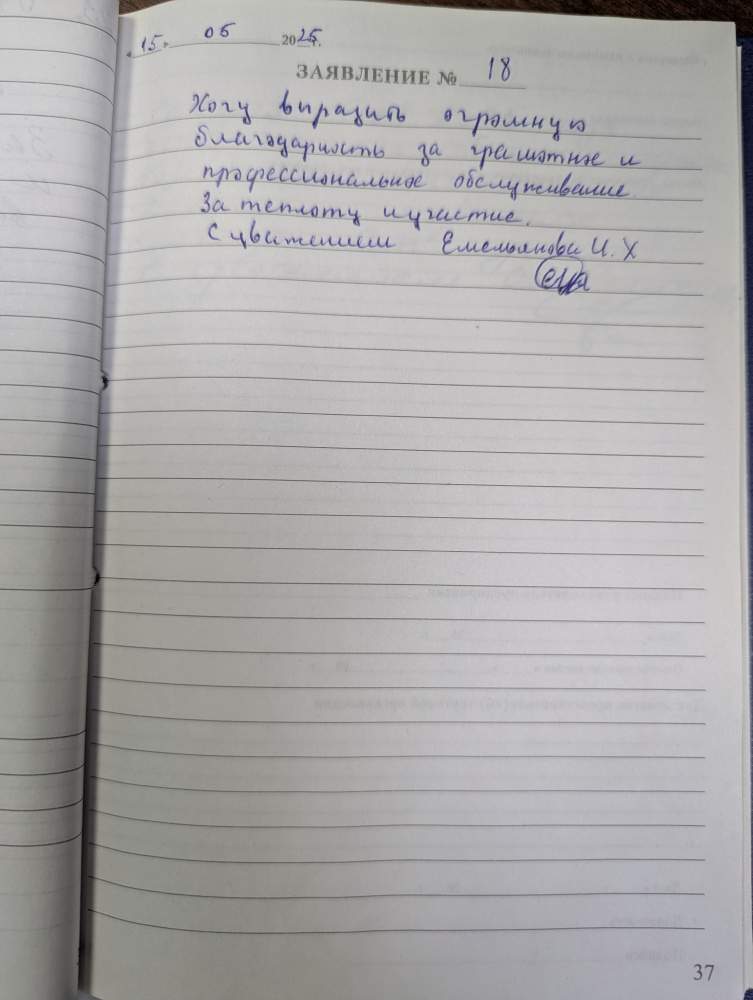 «15» 05 2025г.
ЗАЯВЛЕНИЕ № 18
Хочу выразить огромную
благодарность за грамотное и
профессиональное обслуживание.
За теплоту и участие.
С уважением Емельянова И. Х
37